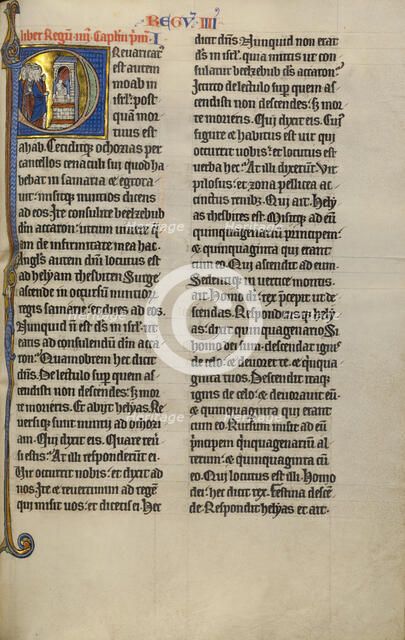 REGV̅ IIII
liber Regū iiij Caplm̄ pm̄ I
Revaricat᷒
est autem
moab in
isrl̅. post
quā mor
tuus est
ahab. Ceciditq; ochozias per
cancellos cenaculi sui quod ha
bebat in samaria et egrota
uit. misitq; nuntios dicens
ad eos. Ite consulite beelzebub
deū accaron. utrum uiuere
de infirmitate mea hac.
Angl̅s autem dn̄i locutus est
ad helyam thesbiten. Surge
ascende in occursum nuntiorū
regis samarie. et dices ad eos.
Nunquid n̄ est ds̄ in isrl̅. ut
eatis consulendū
ron. Quamobrem hec dicit
dn̄s. De lectulo sup̄ quem as
cendisti non descendes. sz mor
te morieris. Et abyt helyas. Re
uersiq; sunt nuntij ad ochoziam.
Qui dixit eis. Quare reu̅
si estis. At illi responderūt ei.
Vir occurrit nobis. et dixit ad
nos. Ite et reuertimini ad regē
qui misit uos. et dicetis ei. Hec
dicit dn̄s. Nunquid non erat
ds̄ in isrl̅. quia mittis ut con
sulatur beelzebub ds̄ accaron.
Iccirco de lectulo sup̄ quem as
cendisti non descendes. sz mor
te morieris. Qui dixit eis. Cuius
figure et habitus est uir qui
occurrit uobis. et locutus est
uerba hec. At illi dixerunt. Vir
pilosus. et zona pellicea ac
cinctus renibz. Qui ait. Hely
as thesbites est. Misitq; ad eū
quinquagenariū principem.
et quinquaginta qui erant
cum eo. Qui ascendit ad eum.
Sedentiq; in uertice montis.
ait. Homo dei. rex precepit ut de
scendas. Respondensq; hely
as. dixit quinquagenario. Si
homo dei sum. descendat ignis
de celo. et deuoret te. et quinqua
ginta tuos. Descendit itaq;
ignis de celo. et deuorauit eū.
et quinquaginta qui erant
cum eo. Rursum misit ad eū
principem quinquagenariū al
terum. et quinquaginta cū
eo. Qui locutus est illi. Homo
dei. hec dicit rex. Festina descē
de. Respondit helyas et ait.
Heritage
Heritage
Heritage
Heritage